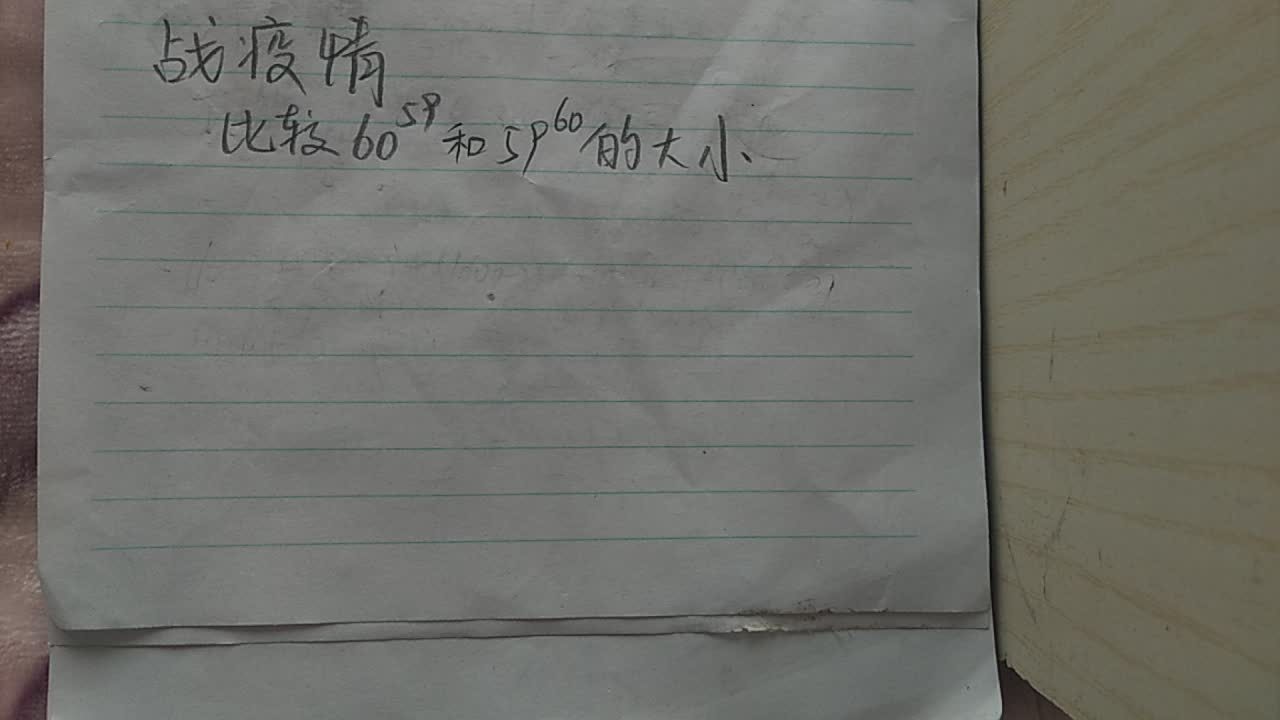 战疫情
比较60⁵⁹和59⁶⁰的大小、